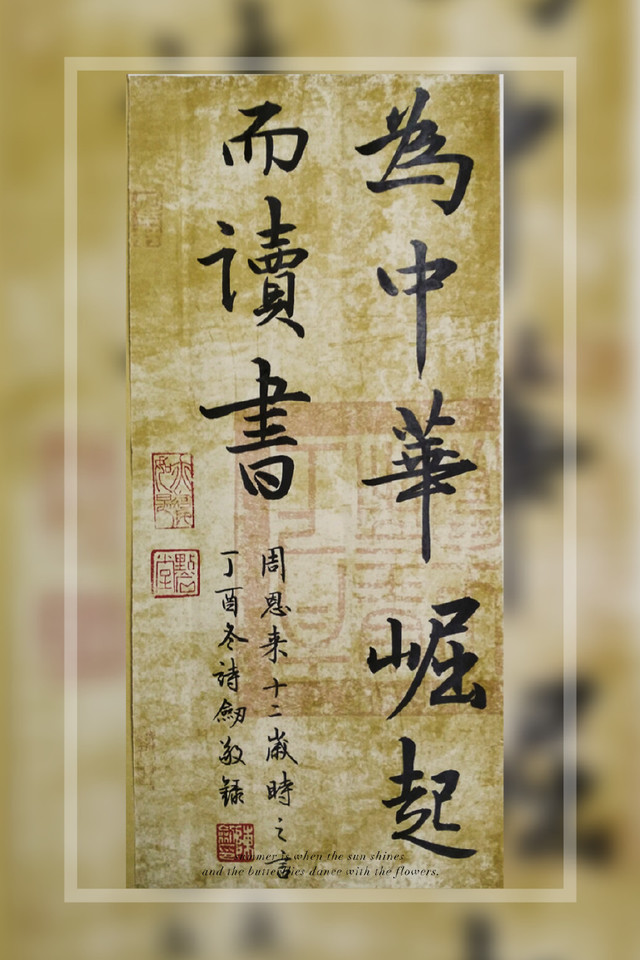 為中華崛起
而讀書
周恩来十二歲時之言
丁酉冬詩劒敬録
summer is when the sun shines
and the butterflies dance with the flowers.